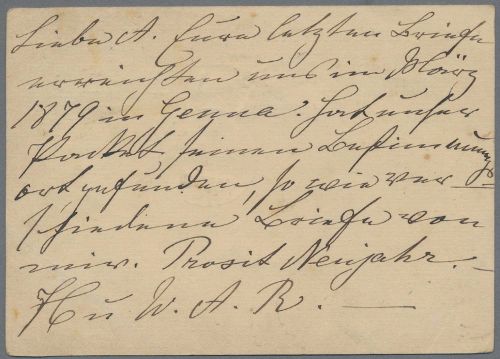 Liebe A. Eure letzten Briefe
erreichten uns im März
1879 in Genua. Hat unser
Packet seinen Bestimmungs
ort gefunden, so wie ver-
schiedene Briefe von
mir. Prosit Neujahr. –
u W. A. R. —